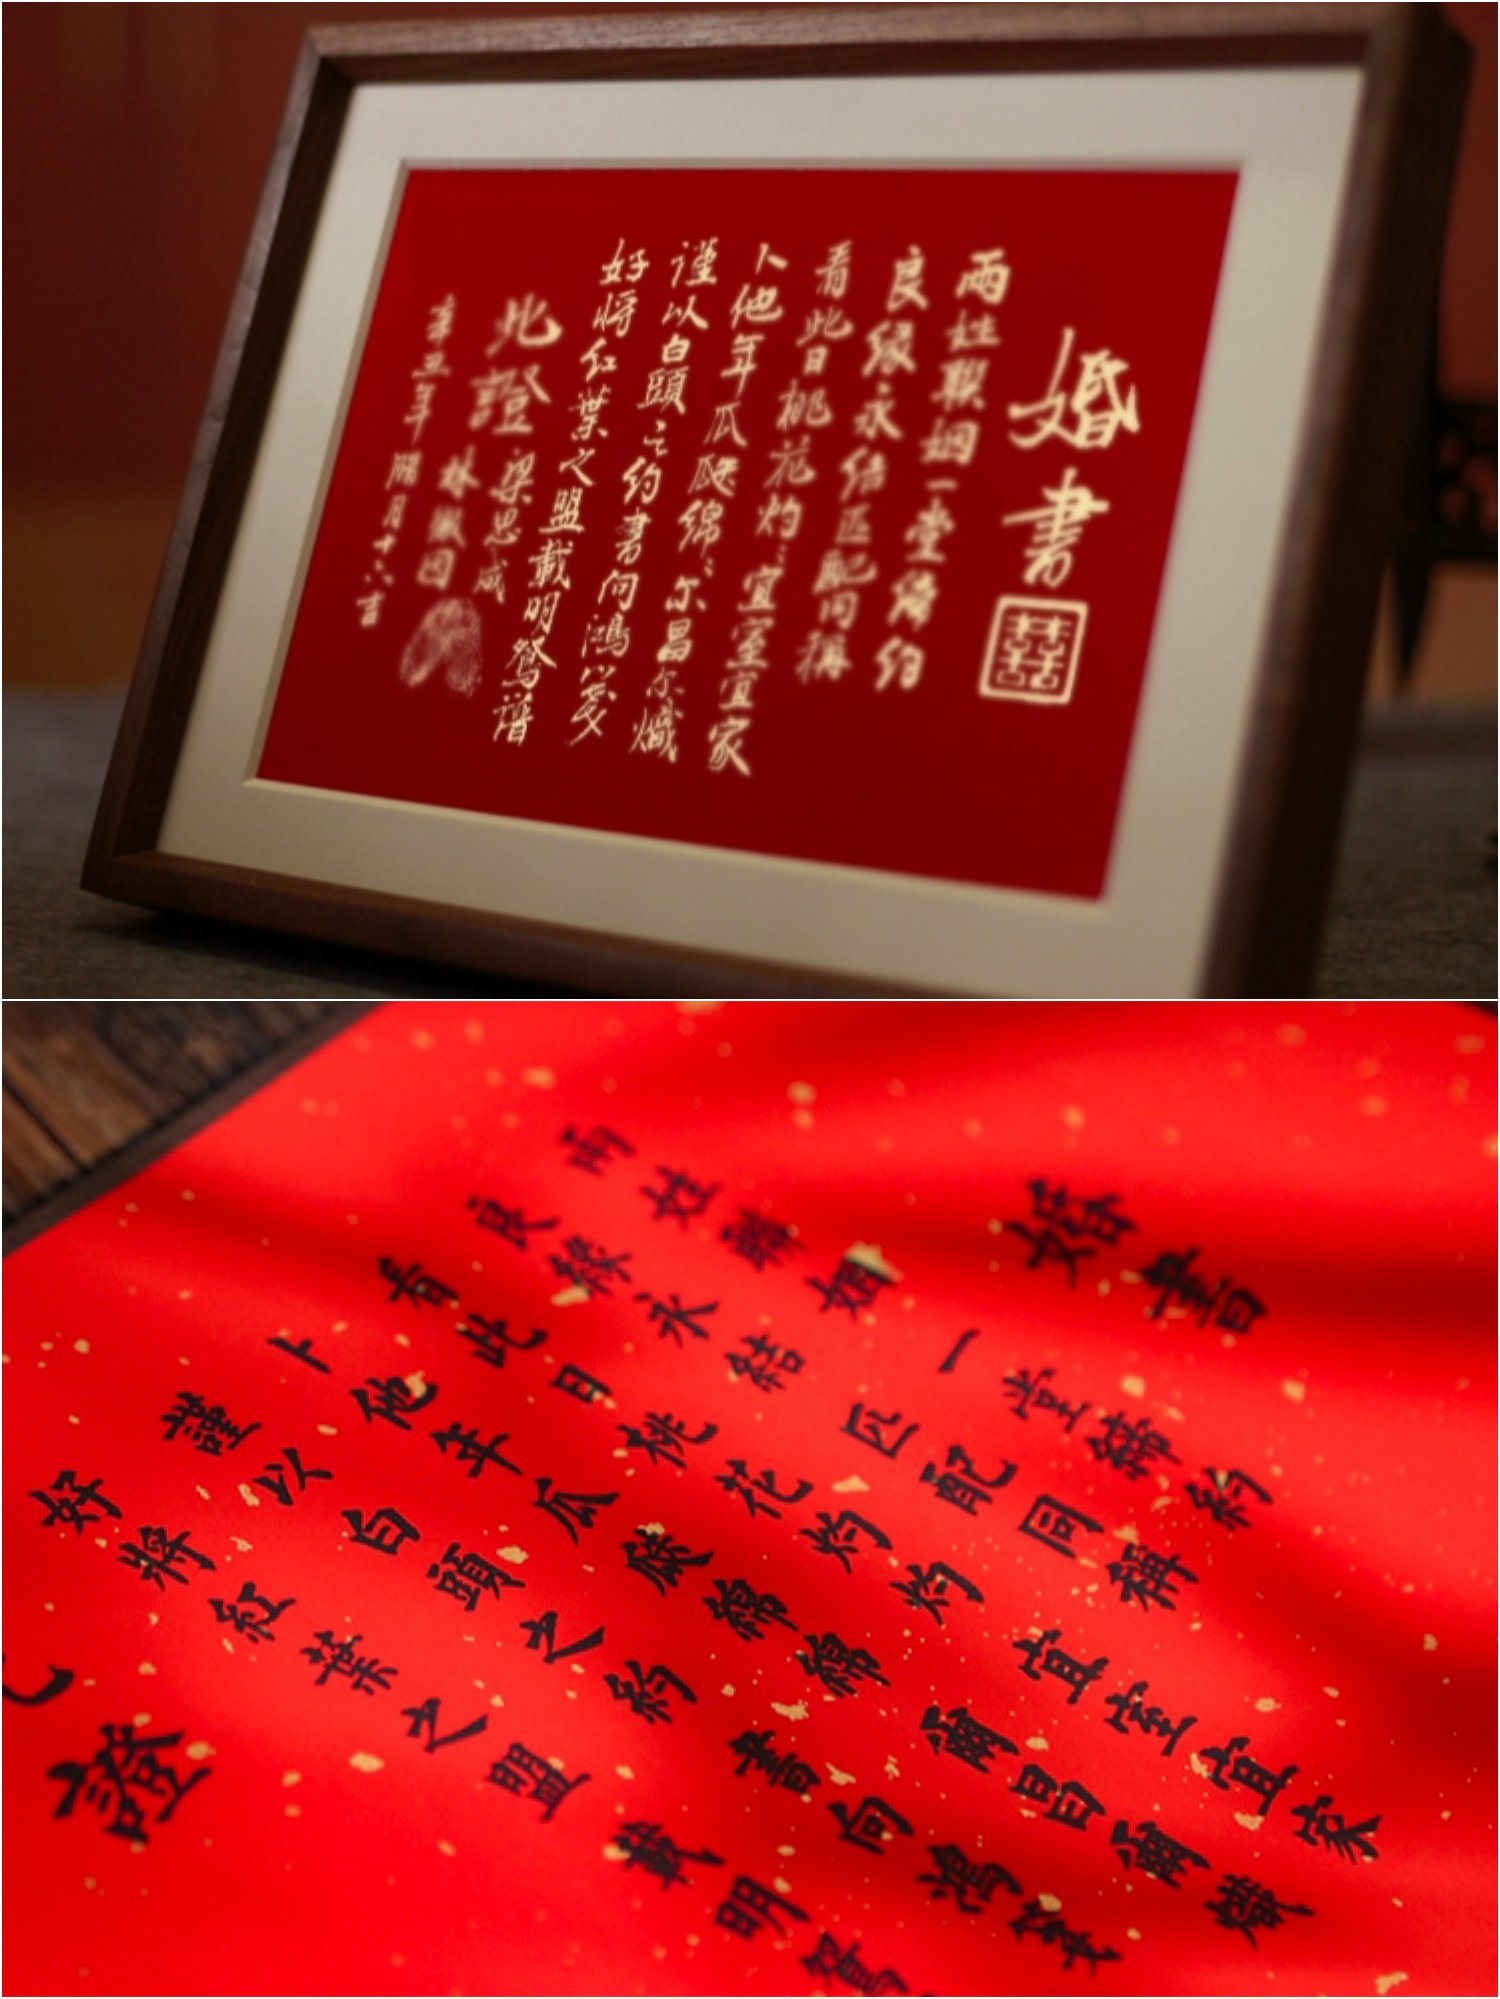 婚書
囍
兩姓聯姻一堂締約
良緣永結匹配同稱
看此日桃花灼灼宜室宜家
卜他年瓜瓞綿綿尔昌尔熾
謹以白頭之約書向鴻箋
好将红葉之盟載明鴛譜
此證
梁思成
林徽因
辛丑年
腊月十六吉
婚書
兩姓聯姻一堂締約
良緣永結匹配同稱
看此日桃花灼灼宜室宜家
卜他年瓜瓞綿綿爾昌爾熾
謹以白頭之約書向鴻箋
好將紅葉之盟載明鴛
證